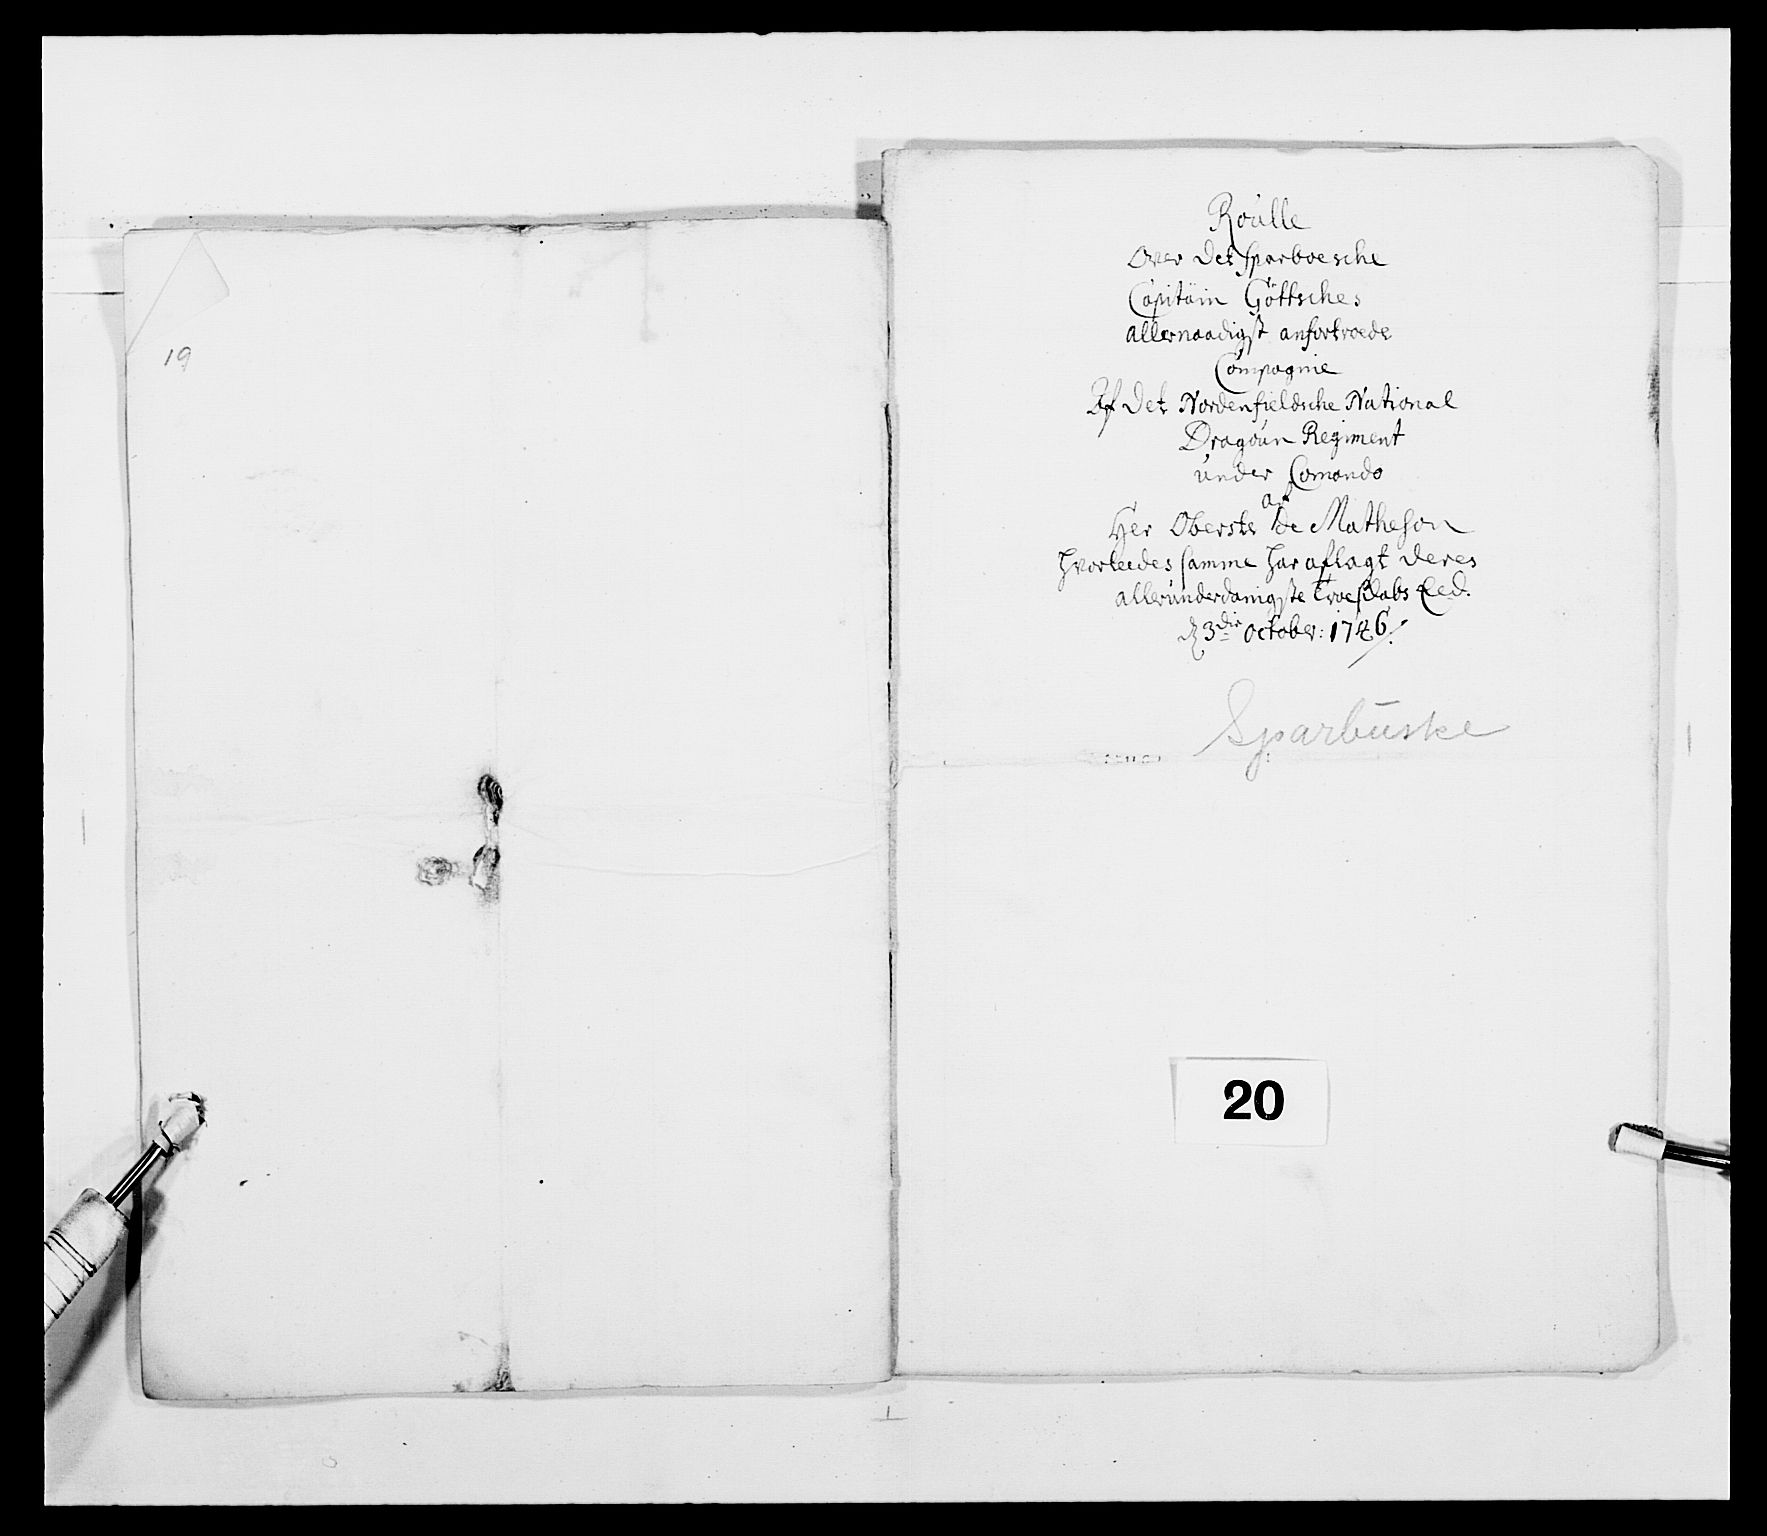 19
Roulle
Over Det Sparboesche
Capitain Göttsches
allernaadigst anfortroede
Compagnie
Af Det Nordenfieldsche National
Dragoun Regiment
under Comando
af
Her Oberste de Matheson
hvorledes samme har aflagt deres
allerunderdanigste Troeskabs Eed.
3die October: 1746
Sparbuske
20